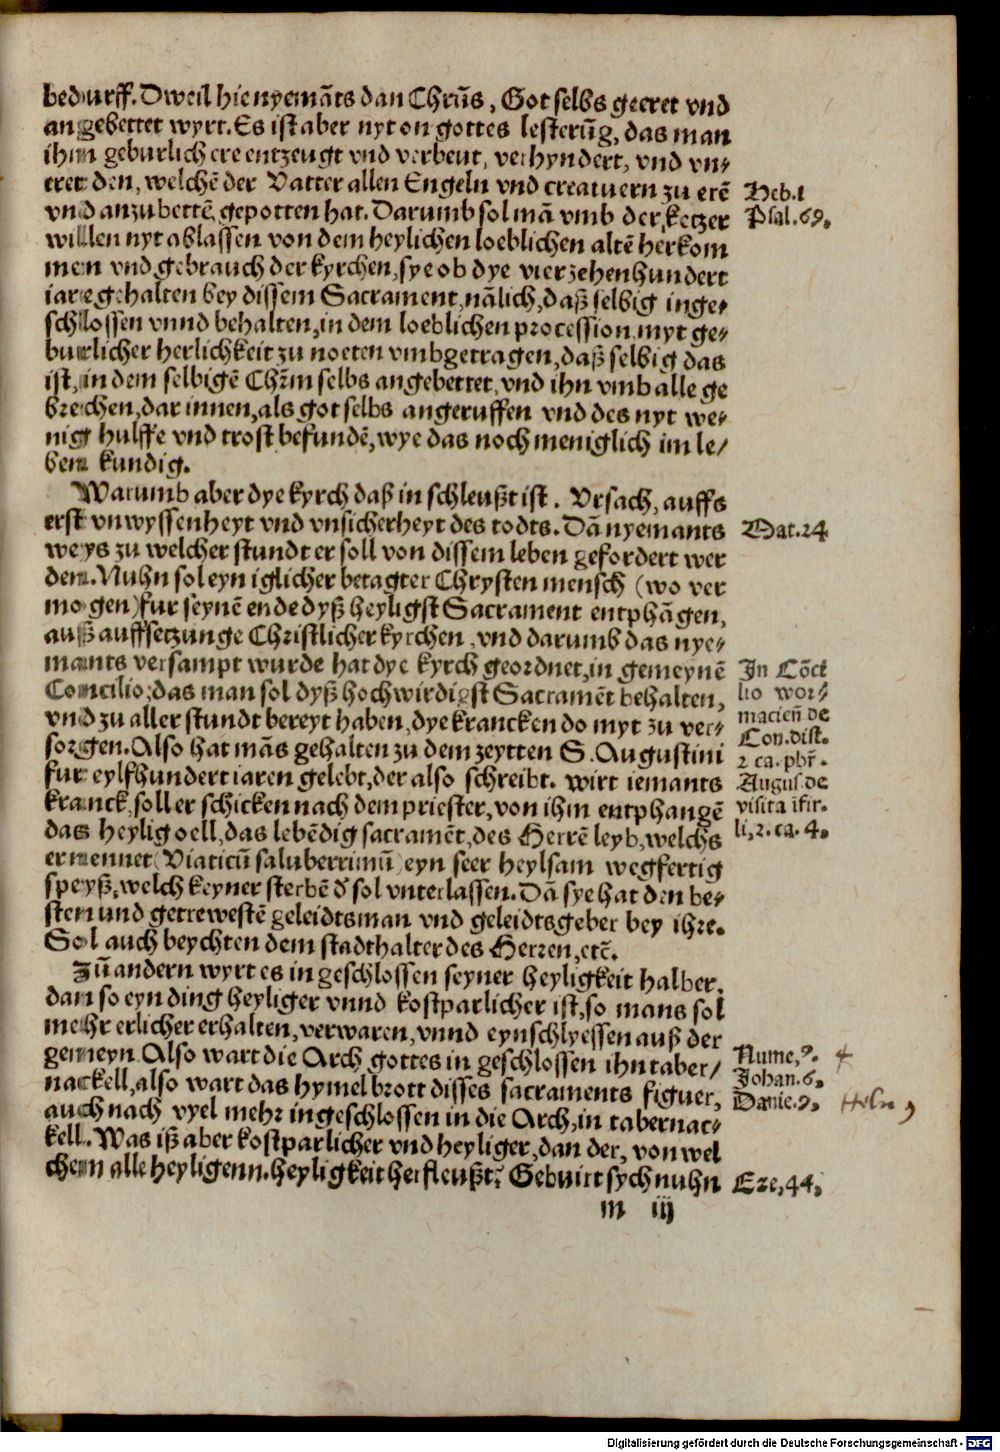 bedurff. Dweil hie nyemāts dan Chrūs, Got selbs geeret vnd
angebettet wyrt. Es ist aber nyt on gottes lesterūg, das man
ihm geburlich ere entzeugt vnd verbeut, verhyndert, vnd vn-
eret den, welchē der Vatter allen Engeln vnd creatuern zu erē
vnd anzubettē gepotten hat. Darumb sol mā vmb der ketzer
willen nyt ablassen von dem heylichen loeblichen altē herkom
men vnd gebrauch der kyrchen, sye ob dye vierzehenhundert
iare gehalten bey dissem Sacrament, nālich, daß selbig inge-
schlossen vnnd behalten, in dem loeblichen procession myt ge-
burlicher herlichkeit zu noeten vmbgetragen, daß selbig das
ist, in dem selbigē Chr̄m selbs angebettet, vnd ihn vmb alle ge
brechen, dar innen, als got selbs angeruffen vnd des nyt we-
nig hulffe vnd trost befundē, wye das noch meniglich im le/
ben kundig.
Warumb aber dye kyrch daß in schleußt ist. Vrsach, auffs
erst vnwyssenheyt vnd vnsicherheyt des todts. Dā nyemants
weys zu welcher stundt er soll von dissem leben gefordert wer
den. Nuhn sol eyn iglicher betagter Chrysten mensch (wo ver
mogen) fur seynē ende dyß heyligst Sacrament entphāgen,
auß auffsetzunge Christlicher kyrchen, vnd darumb das nye-
mants versampt wurde hat dye kyrch geordnet, in gemeynē
Concilio, das man sol dyß hochwirdigst Sacramēt behalten,
vnd zu aller stundt bereyt haben, dye krancken do myt zu ver-
sorgen. Also hat māś gehalten zu dem zeytten S. Augustini
fur eylfhundert iaren gelebt, der also schreibt. wirt iemants
kranck, soll er schicken nach dem priester, von ihm entphangē
das heylig oell, das lebēdig sacramēt, des Herrē leyb, welchs
er nennet (Viaticū saluberrimū) eyn seer heylsam wegfertig
speyß, welch keyner sterbē d' sol vnterlassen. Dā sye hat den be-
sten und getrewestē geleidtsman vnd geleidtsgeber bey ihre.
Sol auch beychten dem stadthalter des Herren, etē.
Zū andern wyrt es in geschlossen seyner heyligkeit halber,
dan so eyn ding heyliger vnnd kostparlicher ist, so mans sol
mehr erlicher erhalten, verwaren, vnnd eynschlyessen auß der
gemeyn. Also wart die Arch gottes in geschlossen ihn taber/
nackell, also wart das hymelbrott disses sacraments figuer,
auch nach vyel mehr ingeschlossen in die Arch, in tabernac-
kell. Was iß aber kostparlicher vnd heyliger, dan der, von wel
chem alle heyligenn. heyligkeit herfleußt? Geburt sych nuhn
m iij
Heb. 1
Psal. 69.
Mat. 24
In Cōci
lio wor-
macień de
Con. dist.
2 ca. pbr̄.
Augus. de
visita īfir.
li, 2. ca. 4.
Nume, 9.
Johan. 6.
Danie. 9.
Eze, 44.
Digitalisierung gefördert durch die Deutsche Forschungsgemeinschaft - DFG